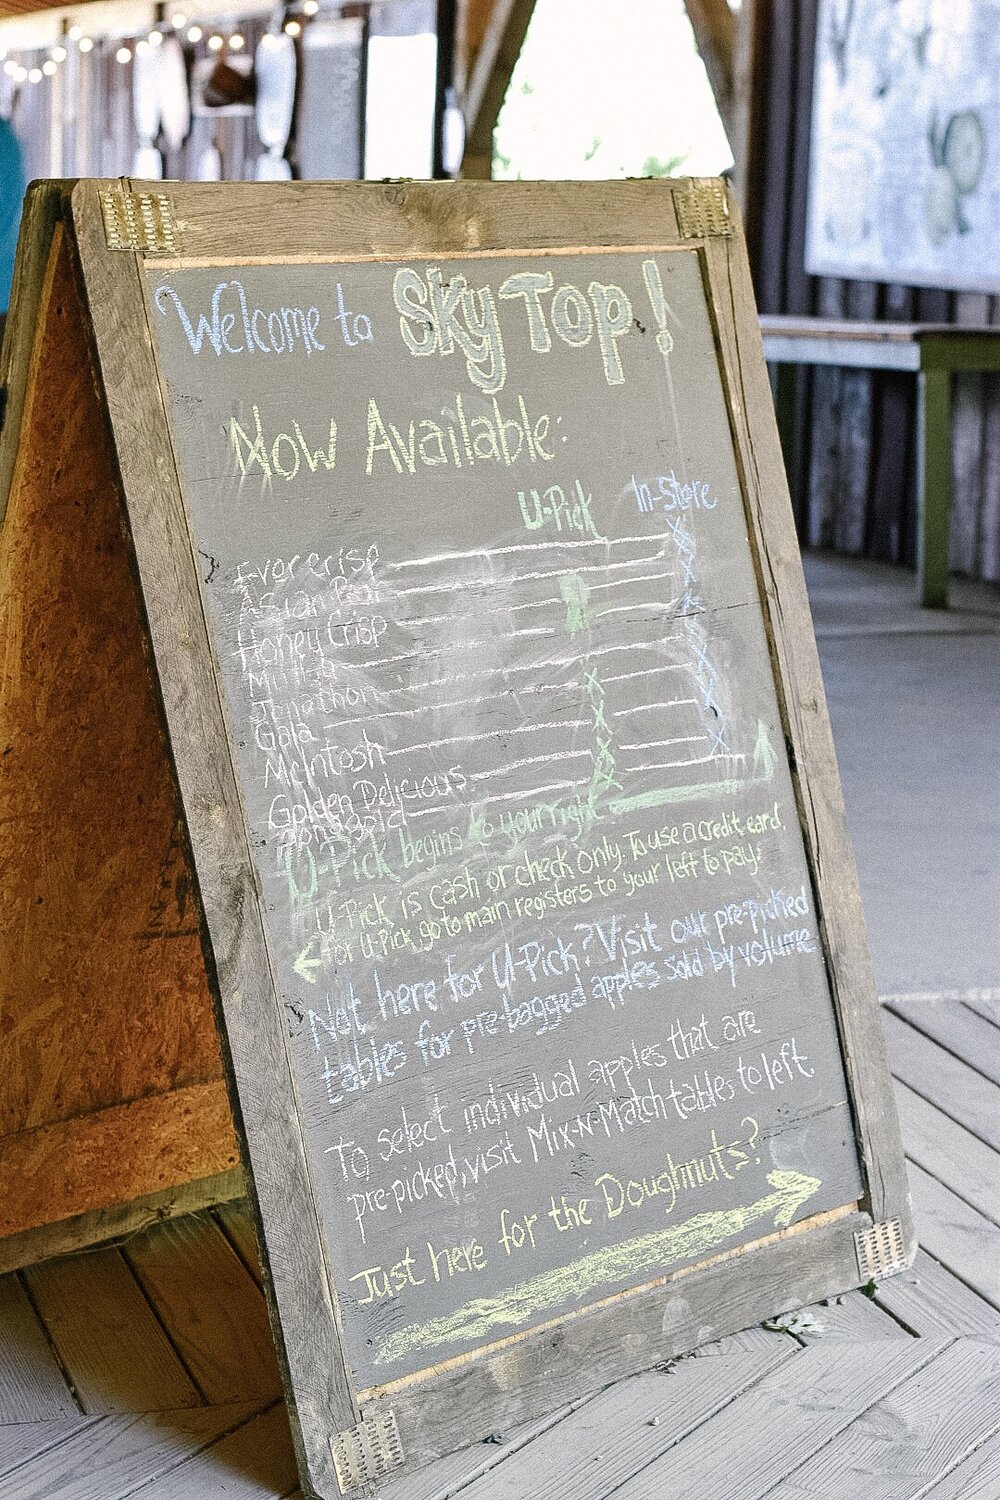 Welcome to Sky Top!
Now Available:
U-Pick In-Store
Evercrisp X
Asian Pear X
Honey Crisp X
X
Jonathon X X
Gala X X
McIntosh X X
Golden Delicious X X
U-Pick begins to your right
U-Pick is cash or check only. To use a credit card
for U-Pick, go to main registers to your left to pay.
Not here for U-Pick? Visit our pre-picked
tables for pre-bagged apples sold by volume
To select individual apples that are
pre-picked, visit Mix-N-Match tables to left.
Just here for the Doughnuts?